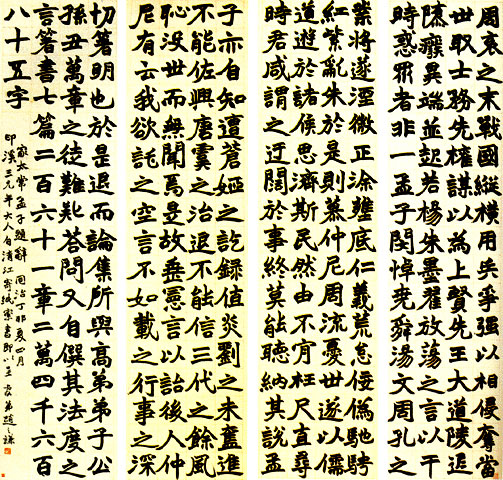 周衰之末戰國縱橫用兵爭強以相侵奪當
世取士務先權謀以為上賢先王大道陵遲
隳癈異端並起若楊朱墨翟放蕩之言以干
時惑眾者非一孟子閔悼堯舜湯文周孔之
業將遂湮微正塗壅底仁義荒怠佞偽馳騁
紅紫亂朱於是則慕仲尼周流憂世遂以儒
道遊於諸侯思濟斯民然由不肯枉尺直尋
時君咸謂之迂闊於事終莫能聽納其說孟
子亦自知遭蒼姬之訖録值炎劉之未奮進
不能佐興唐虞之治退不能信三代之餘風
恥没世而無聞焉是故垂憲言以詒後人仲
尼有云我欲託之空言不如載之行事之深
切箸明也於是退而論集所與高弟弟子公
孫丑萬章之徒難疑答問又自僎其法度之
言箸書七篇二百六十一章二萬四千六百
八十五字
家太常孟子題辭 同治丁卯夏四月
印溪三兄年大人自清江寄紙索書即以正 家弟趙之謙